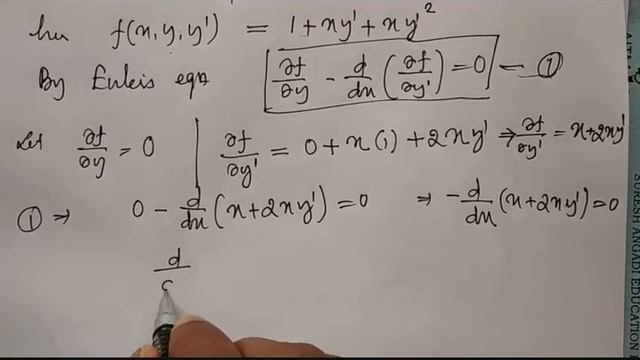 her f(x, y, y') = 1 + xy' + xy'²
By Euler's eqn ∂f/∂y - d/dx (∂f/∂y') = 0 — ①
Let ∂f/∂y = 0 | ∂f/∂y' = 0 + x(1) + 2xy' ⇒ ∂f/∂y' = x+2xy'
① ⇒ 0 - d/dx (x+2xy') = 0 ⇒ - d/dx (x+2xy') = 0
d
SURESH ANGADI EDUCATION